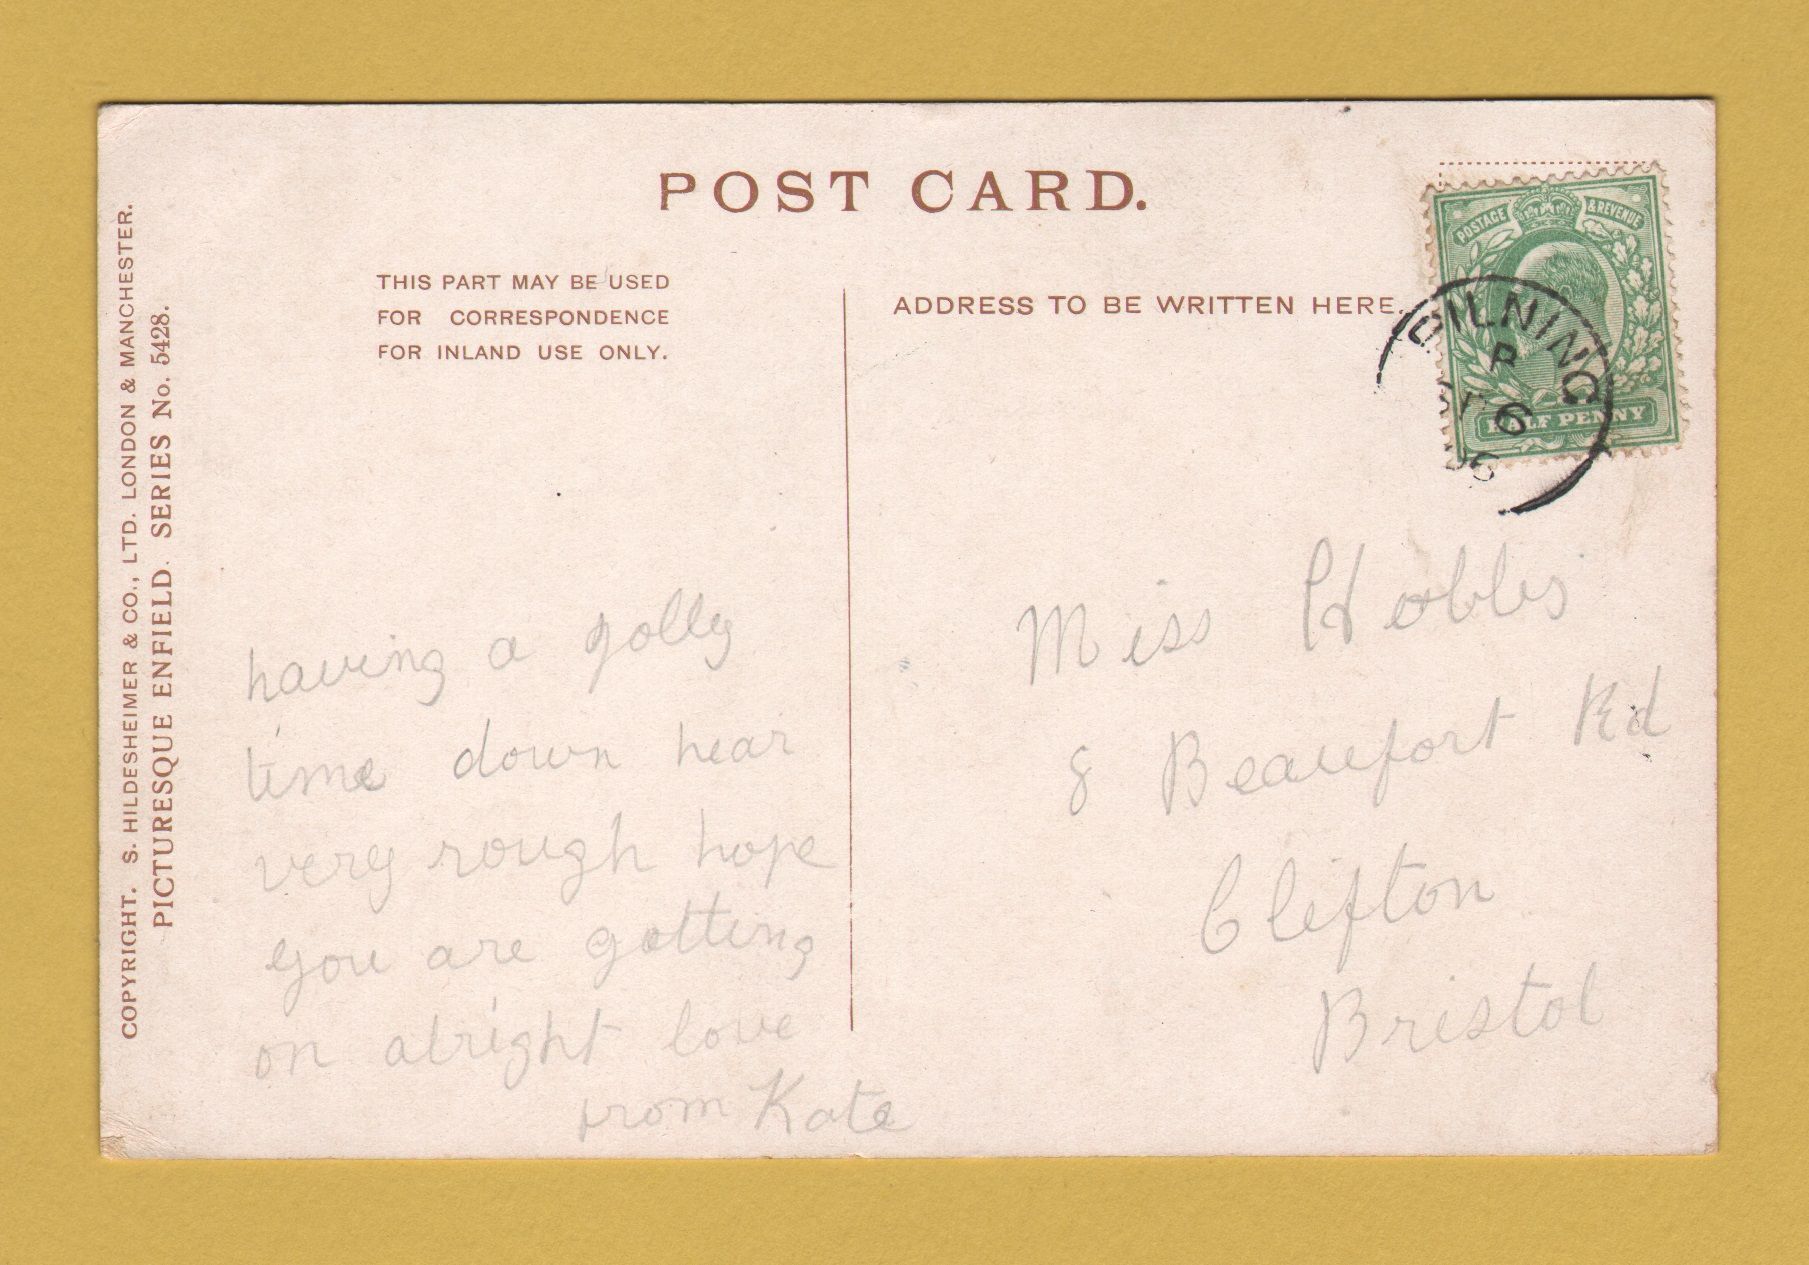 POST CARD.
THIS PART MAY BE USED
FOR CORRESPONDENCE
FOR INLAND USE ONLY.
ADDRESS TO BE WRITTEN HERE.
POSTAGE & REVENUE
HALF PENNY
PILNING
6
06
COPYRIGHT. S. HILDESHEIMER & CO., LTD. LONDON & MANCHESTER.
PICTURESQUE ENFIELD. SERIES No. 5428.
having a jolly
time down hear
very rough hope
you are getting
on alright love
from Kate
Miss Hobbs
8 Beaufort Rd
Clifton
Bristol